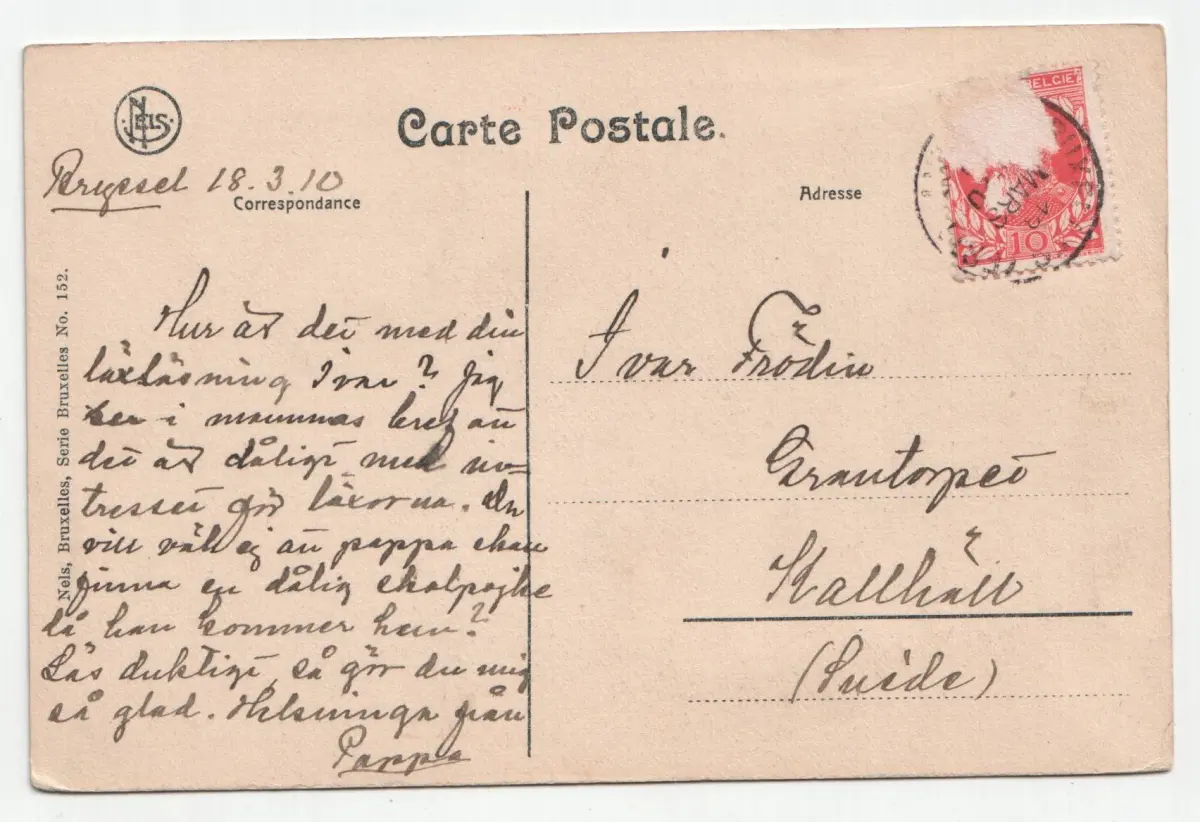 NELS
Carte Postale.
Bryssel 18.3.10
Correspondance
Adresse
BELGIE
MARS
10
Nels, Bruxelles, Serie Bruxelles No. 152.
Hur är det med din
läxläsning Ivar? Jag
ser i mammas bref att
det är dåligt med in-
tresset för läxorna. Du
vill väl ej att pappa skall
finna en dålig skolpojke
då han kommer hem?
Läs duktigt så gör du mig
så glad. Helsninga från
Pappa
Ivar Frödin
Grantorpet
Kallhäll
(Suède)